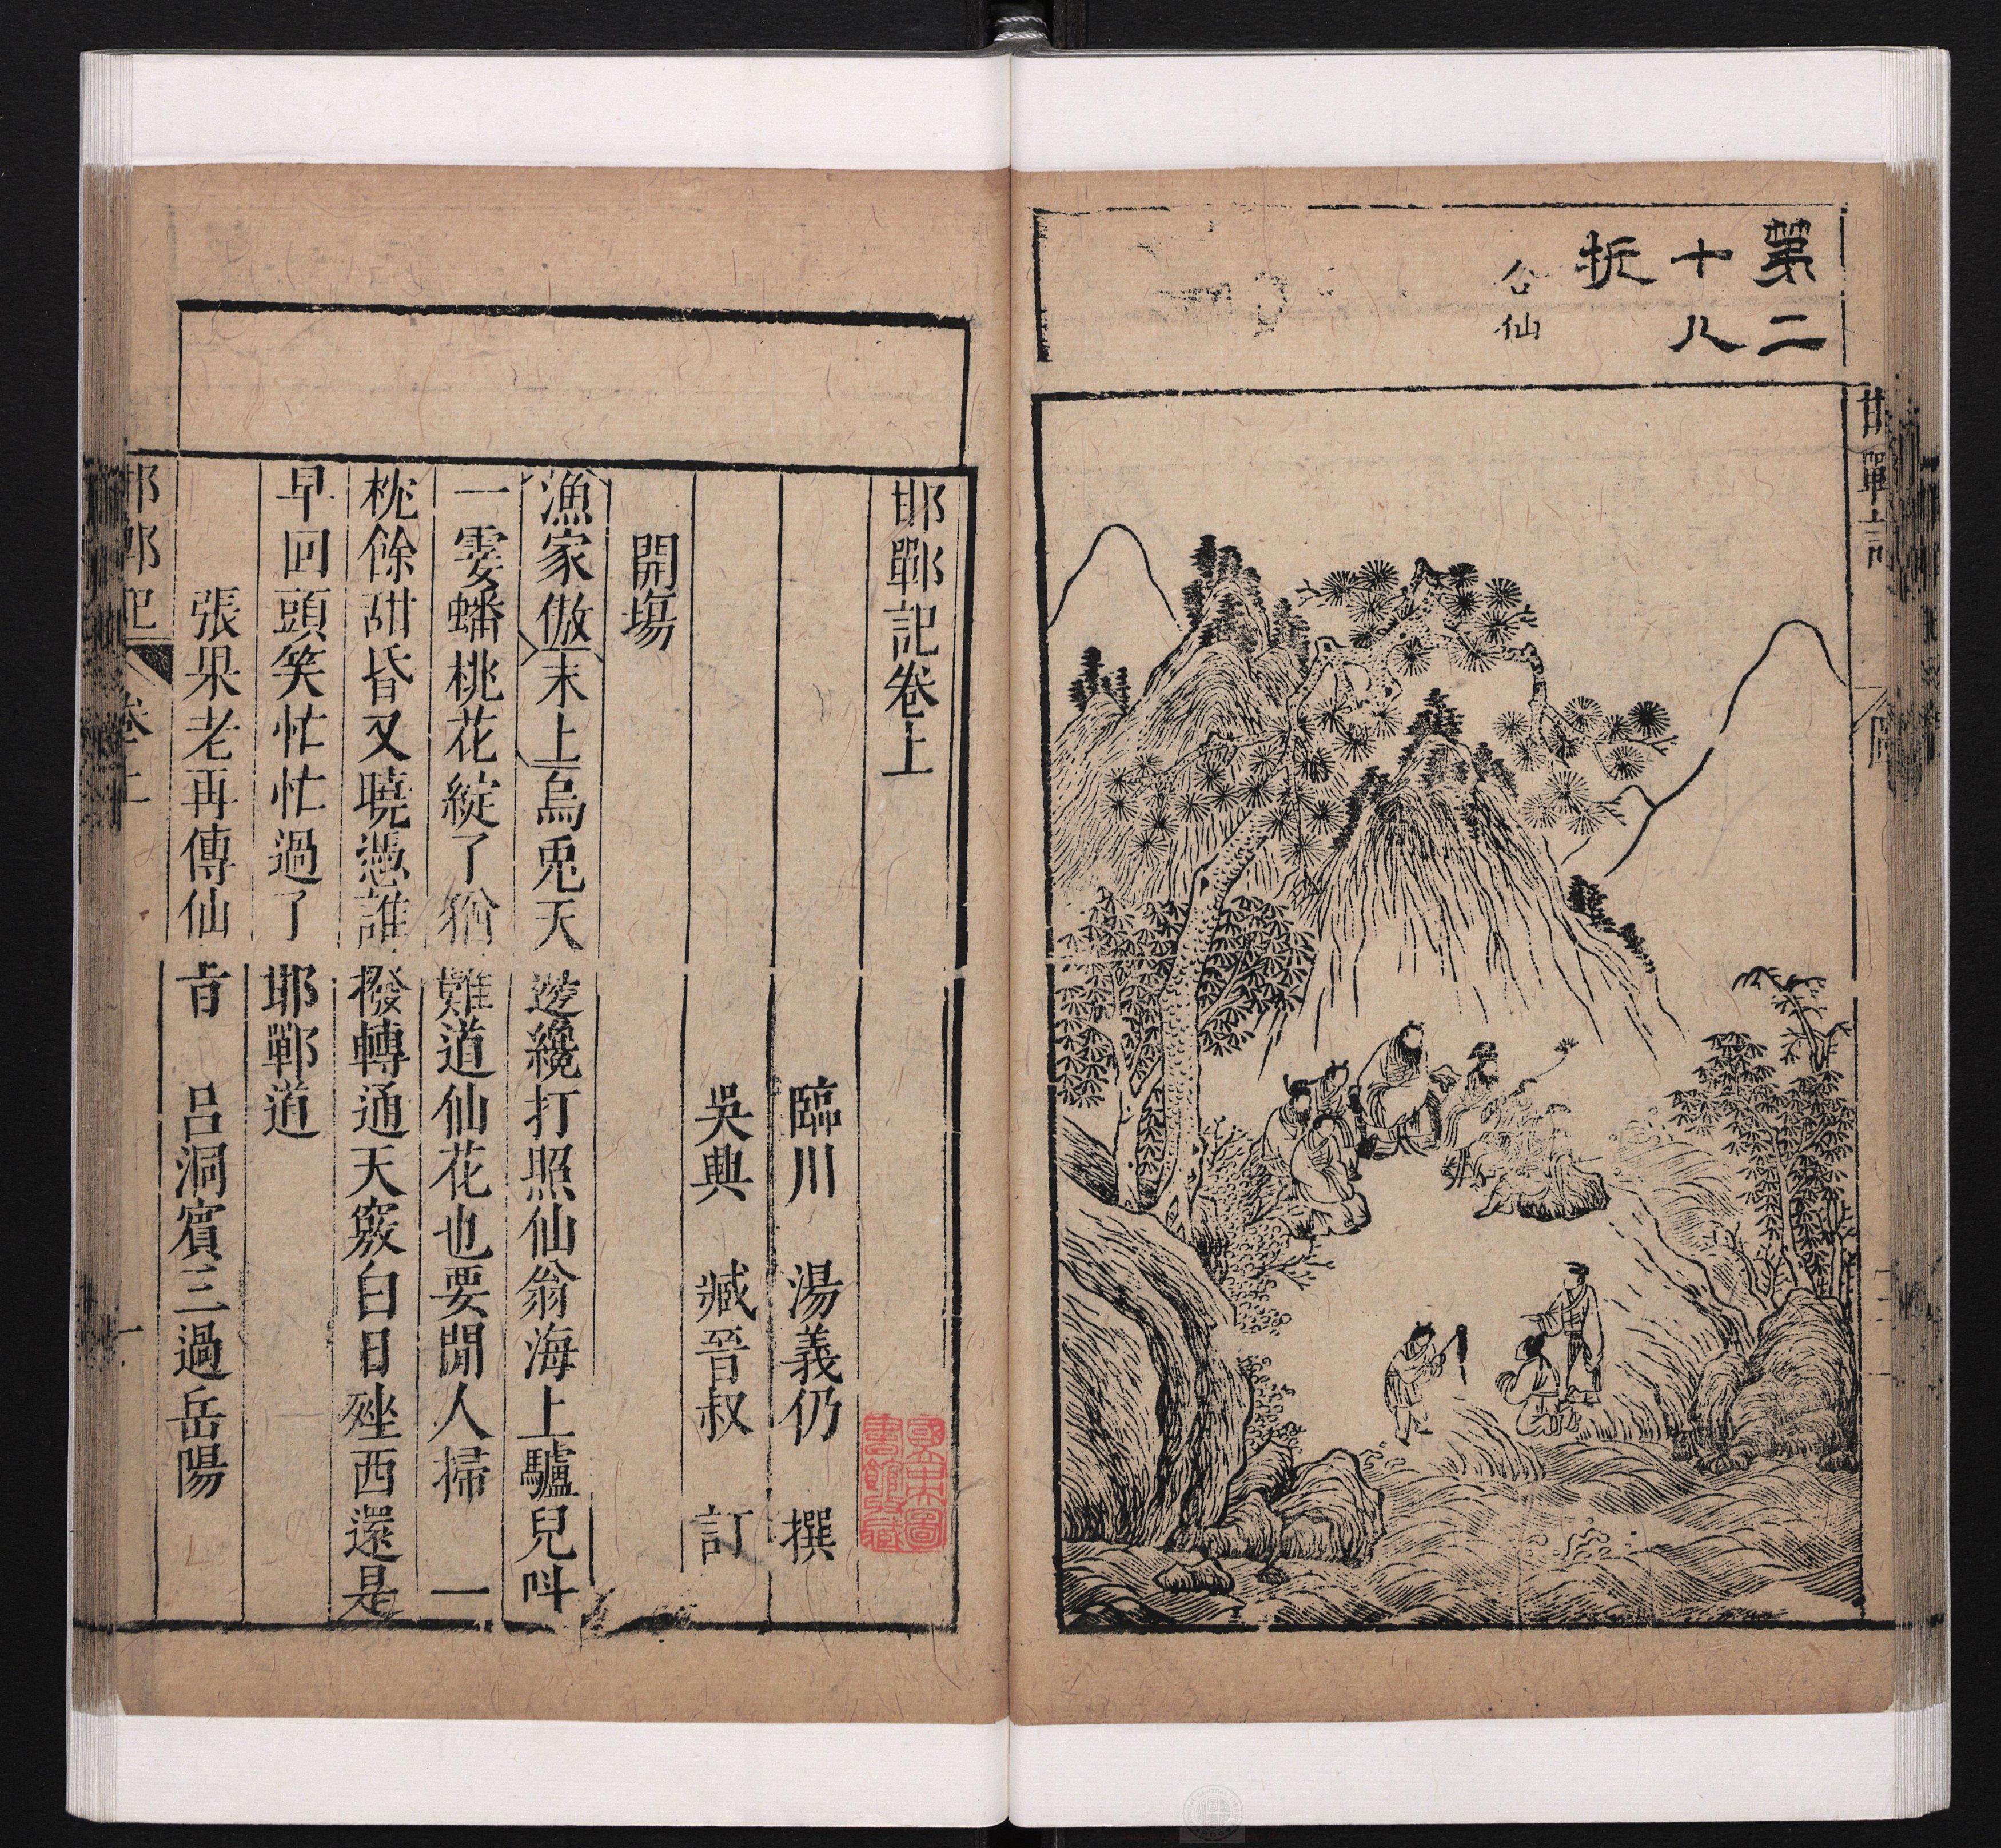 第二
十八
折
合仙
邯鄲記卷上
臨川　湯義仍　撰
吳興　臧晉叔　訂
開塲
漁家傲末上烏兎天邊纔打照仙翁海上驢兒呌
一霎蟠桃花綻了猶難道仙花也要閒人掃　一
枕餘甜昏又曉慿誰撥轉通天竅白日𡋲西還是
早回頭笑忙忙過了邯鄲道
張果老再傳仙旨　呂洞賓三過岳陽
邯鄲記　卷上　一
國立中央圖書館收藏